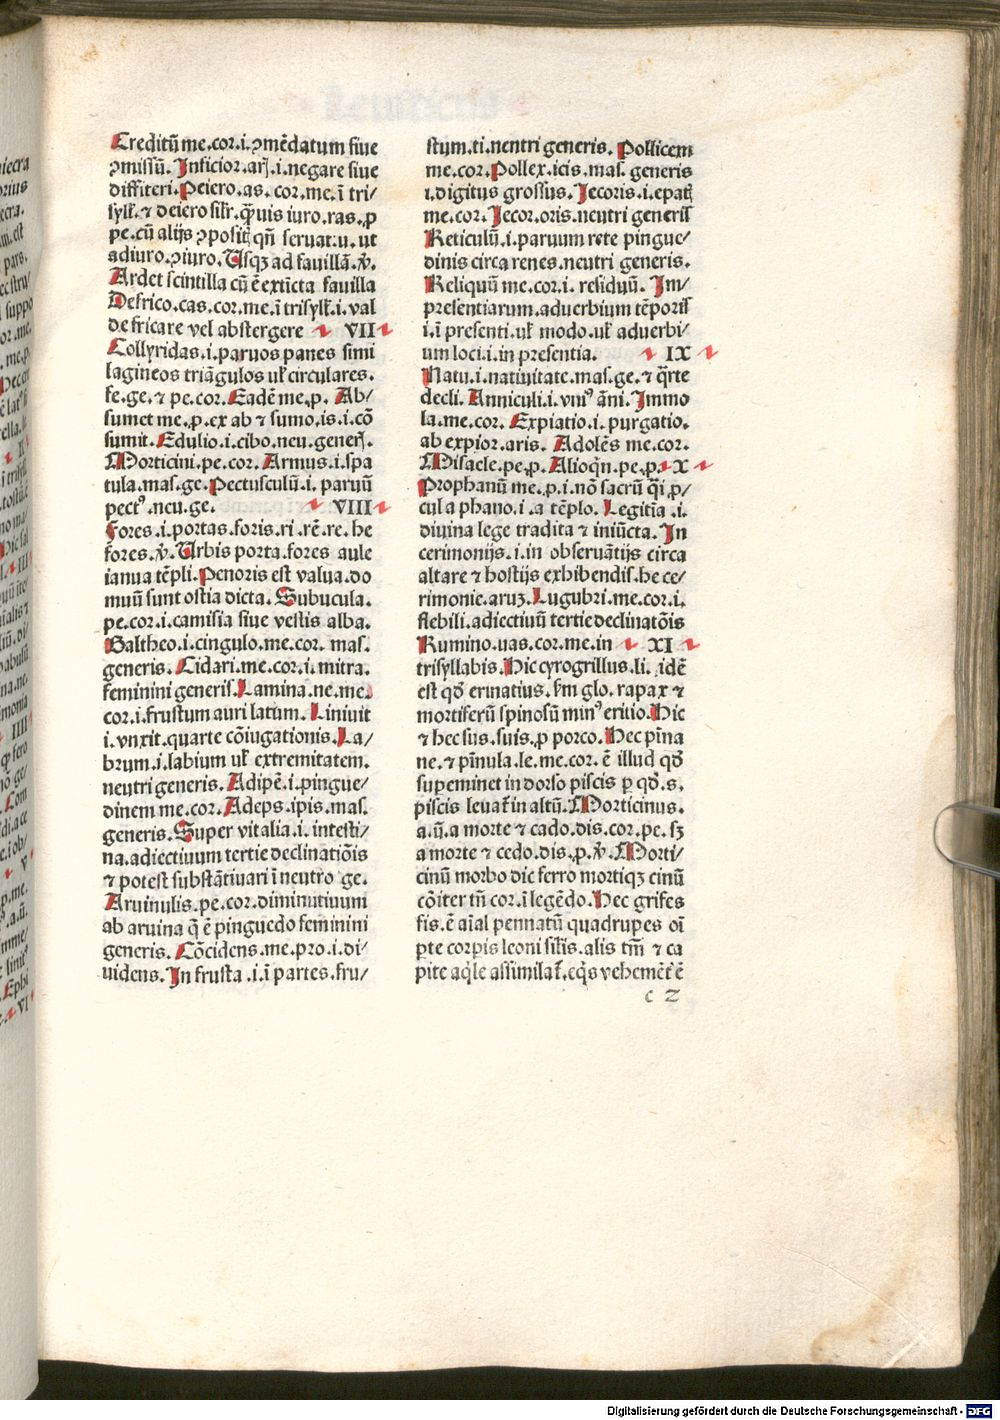 Creditū me.cor.i.ꝯmēdatum siue
ꝯmissū. Inficior.arꝭ.i.negare siue
diffiteri. Peiero.as. cor.me.ī tri/
syłł. ⁊ deiero silr. q̄uis iuro.ras.p̱
pe.cū alijs ꝯpositꝫ qn̄ seruat:u. ut
adiuro.ꝯiuro. Usqꝫ ad fauillā.v̄.
Ardet scintilla cū ē extīcta fauilla
Defrico.cas.cor.me.ī trisyłł.i.val
de fricare vel abstergere VII
Collyridas.i.paruos panes simi
lagineos triāgulos uł circulares.
fe.ge.⁊ pe.cor. Eadē me.p. Ab/
sumet me.p.ex ab ⁊ sumo.is.i.cō
sumit. Edulio.i.cibo.neu.generꝭ.
Morticini.pe.cor. Armus.i.spa
tula.mas.ge. Pectusculū.i. paruū
pectꝰ.neu.ge. VIII
Fores.i.portas.foris.ri.rē.re. he
fores.v̄. Urbis porta.fores aule
ianua tēpli. Penoris est valua.do
muū sunt ostia dicta. Subucula.
pe.cor.i.camisia siue vestis alba.
Baltheo.i.cingulo.me.cor. mas.
generis. Cidari.me.cor.i.mitra.
feminini generis. Lamina.ne.me.
cor.i.frustum auri latum. Liniuit
i.vnxit.quarte cōiugationis. La/
brum.i.labium uł extremitatem.
neutri generis. Adipē.i.pingue/
dinem me.cor. Adeps.ipis.mas.
generis. Super vitalia.i. intesti/
na.adiectiuum tertie declinatiōis
⁊ potest substātiuari ī neutro ge.
Aruinulis.pe.cor.diminutiuum
ab aruina q̄ ē pinguedo feminini
generis. Cōcidens.me.pro.i.di/
uidens. In frusta .i.ī partes.fru/
stum.ti.neutri generis. Pollicem
me.cor. Pollex.icis.mas. generis
i.digitus grossus. Iecoris.i.epatꝭ
me.cor. Iecor.oris.neutri generis
Reticulū.i.paruum rete pingue/
dinis circa renes.neutri generis.
Reliquū me.cor.i. residuū. Im/
presentiarum.aduerbium tēporis
i.ī presenti.uł modo.uł aduerbi/
um loci.i.in presentia. IX
Natu.i.natiuitate.mas.ge.⁊ q̄rte
decli. Anniculi.i.vniꝰ āni. Immo
la.me.cor. Expiatio.i. purgatio.
ab expior.aris. Adolēs me.cor.
Misaele.pe.p. Alioqn̄.pe.p. X
Prophanū me.p.i.nō sacrū q̄si p̱/
cula phano.i.a tēplo. Legitīa .i.
diuina lege tradita ⁊ iniūcta. In
cerimonijs.i.in obseruātijs circa
altare ⁊ hostijs exhibendis.he ce/
rimonie.aruꝫ. Lugubri.me.cor.i.
flebili.adiectiuū tertie declinatōis
Rumino.uas.cor.me.in XI
trisyllabis. Hic cyrogrillus.li. idē
est qd̄ erinatius. sm glo. rapax ⁊
mortiferū spinosū minꝰ eritio. Hic
⁊ hec sus.suis.p̱ porco. Hec pīna
ne.⁊ pīnula.le.me.cor. ē illud qd̄
supeminet in dorso piscis p̱ qd̄.s.
piscis leuat̄ in altū. Morticinus.
a.ū.a morte ⁊ cado.dis.cor.pe. sꝫ
a morte ⁊ cedo.dis.p.v̄. Morti/
cinū morbo dic ferro mortiqꝫ cinū
cōiter tn̄ cor.ī legēdo. Hec grifes
fis.ē aīal pennatū quadrupes oī
p̱te corp̱is leoni silis.alis tm̄ ⁊ ca
pite aq̄le assimilat̄.eqꝭ vehemēt̄ ē
c 2
Digitalisierung gefördert durch die Deutsche Forschungsgemeinschaft - DFG